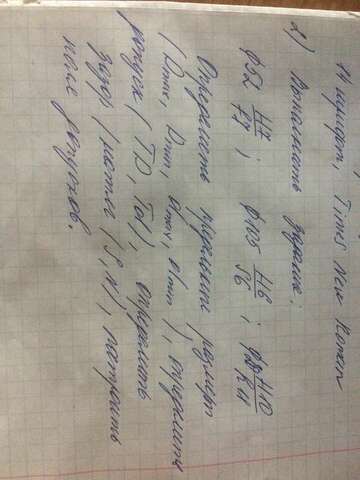 14 шрифт, Times New Roman
2) Выполнить задание:
ф52 H7/f7 ; ф105 H6/s6 ; H10
Определить предельные размеры
(Dmax, Dmin, dmax, dmin), определить
допуск (TD, Td), определить
зазор, натяг (S, N), построить
поле допусков.